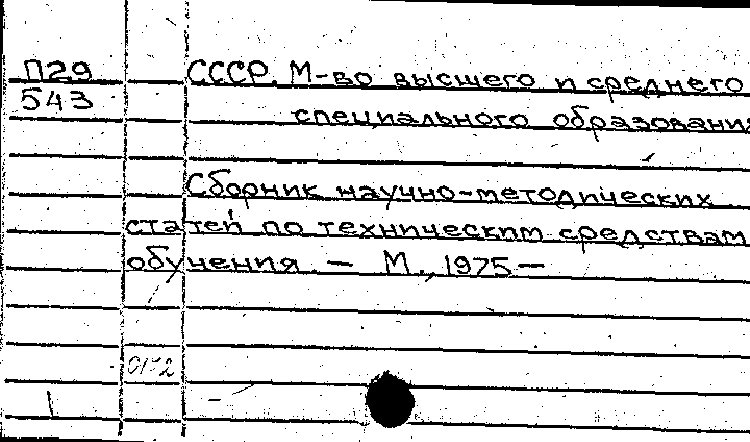 П29 СССР. М-во высшего и среднего
543 специального образования
Сборник научно-методических
статей по техническим средствам
обучения. — М., 1975 —